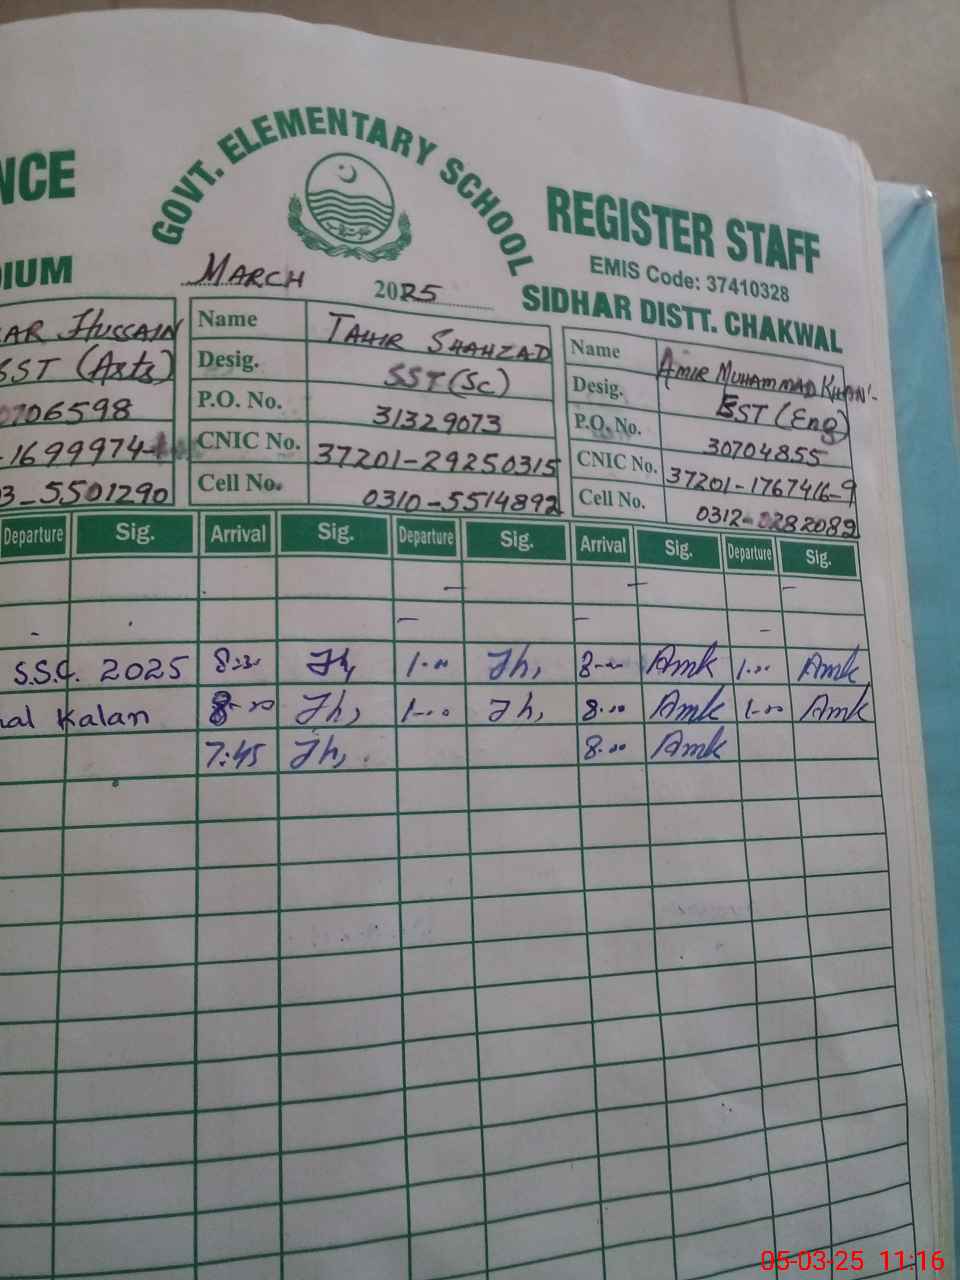 NCE
GOVT. ELEMENTARY SCHOOL
REGISTER STAFF
EMIS Code: 37410328
DIUM
MARCH 2025
SIDHAR DISTT. CHAKWAL
AR HUSSAIN
SST (Arts)
0706598
-1699974-
3-5501290
Name TAHIR SHAHZAD
Desig. SST (Sc)
P.O. No. 31329073
CNIC No. 37201-29250315
Cell No. 0310-5514892
Name AMIR MUHAMMAD KHAN
Desig. EST (Eng)
P.O. No. 30704855
CNIC No. 37201-1767416-9
Cell No. 0312-0282089
Departure Sig. Arrival Sig. Departure Sig. Arrival Sig. Departure Sig.
S.S.C. 2025 Jh, 1-00 Jh, 8-00 Amk 1-00 Amk
al Kalan 8-00 Jh, 1-00 Jh, 8-00 Amk 1-00 Amk
7:45 Jh, 8-00 Amk
05-03-25 11:16